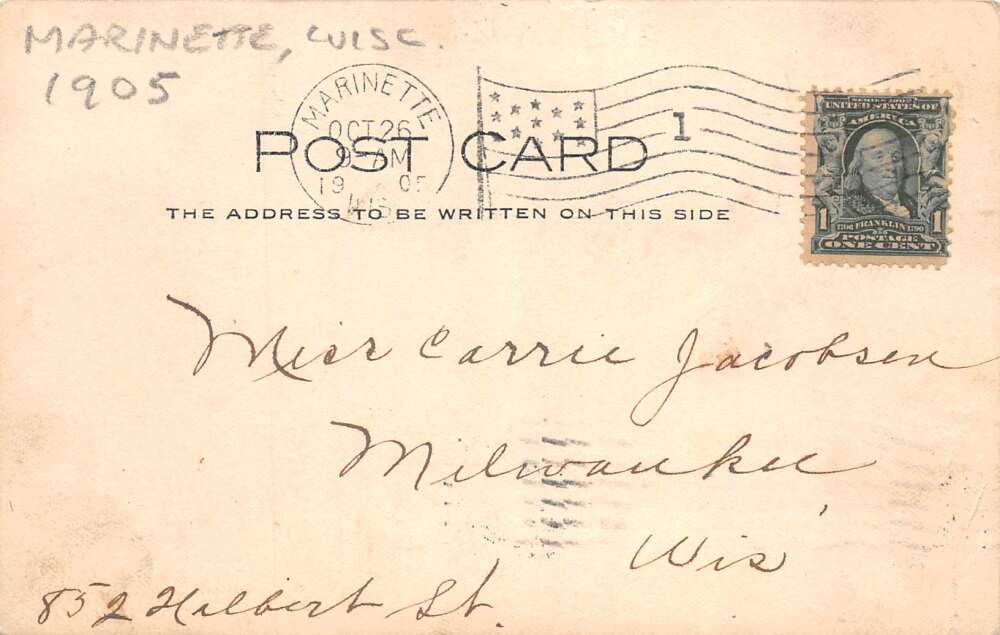 MARINETTE, WISC.
1905
MARINETTE
OCT 26
9 AM
1905
WIS
1
POST CARD
THE ADDRESS TO BE WRITTEN ON THIS SIDE
SERIES 1902
UNITED STATES OF
AMERICA
1 1706 FRANKLIN 1790 1
POSTAGE
ONE CENT
Miss Carrie Jacobsen
Milwaukee
Wis
852 Halbert St.